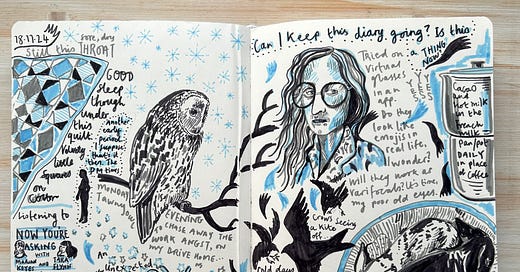 18·11·24
sore, dry
Still this THROAT
GOOD
sleep
though
under
this
quilt.
Velvety
little
squares
on
cotton
Another
early
period
I suppose
that's it
then. The
PM time
listening to
NOW YOU'RE
ASKING
WITH
MARIAN
KEYES
and
TARA
FLYNN
MONDAY
TAWNY OWL
EVENING
to CHASE AWAY THE
WORK ANGST, ON
MY DRIVE HOME.
an
Can I keep this diary going? Is this
a THING
NOW?
YES
YES
Tried on
virtual
glasses
in an
app.
Do they
look like
emojis in
real life,
I wonder?
Will they work as
varifocals? It's time,
my poor old eyes.
CACAO
and
Hot milk
on the
french
milk
Panpot
DAILY
in place
of Coffee
Crows seeing
a Kite
off.
Old days